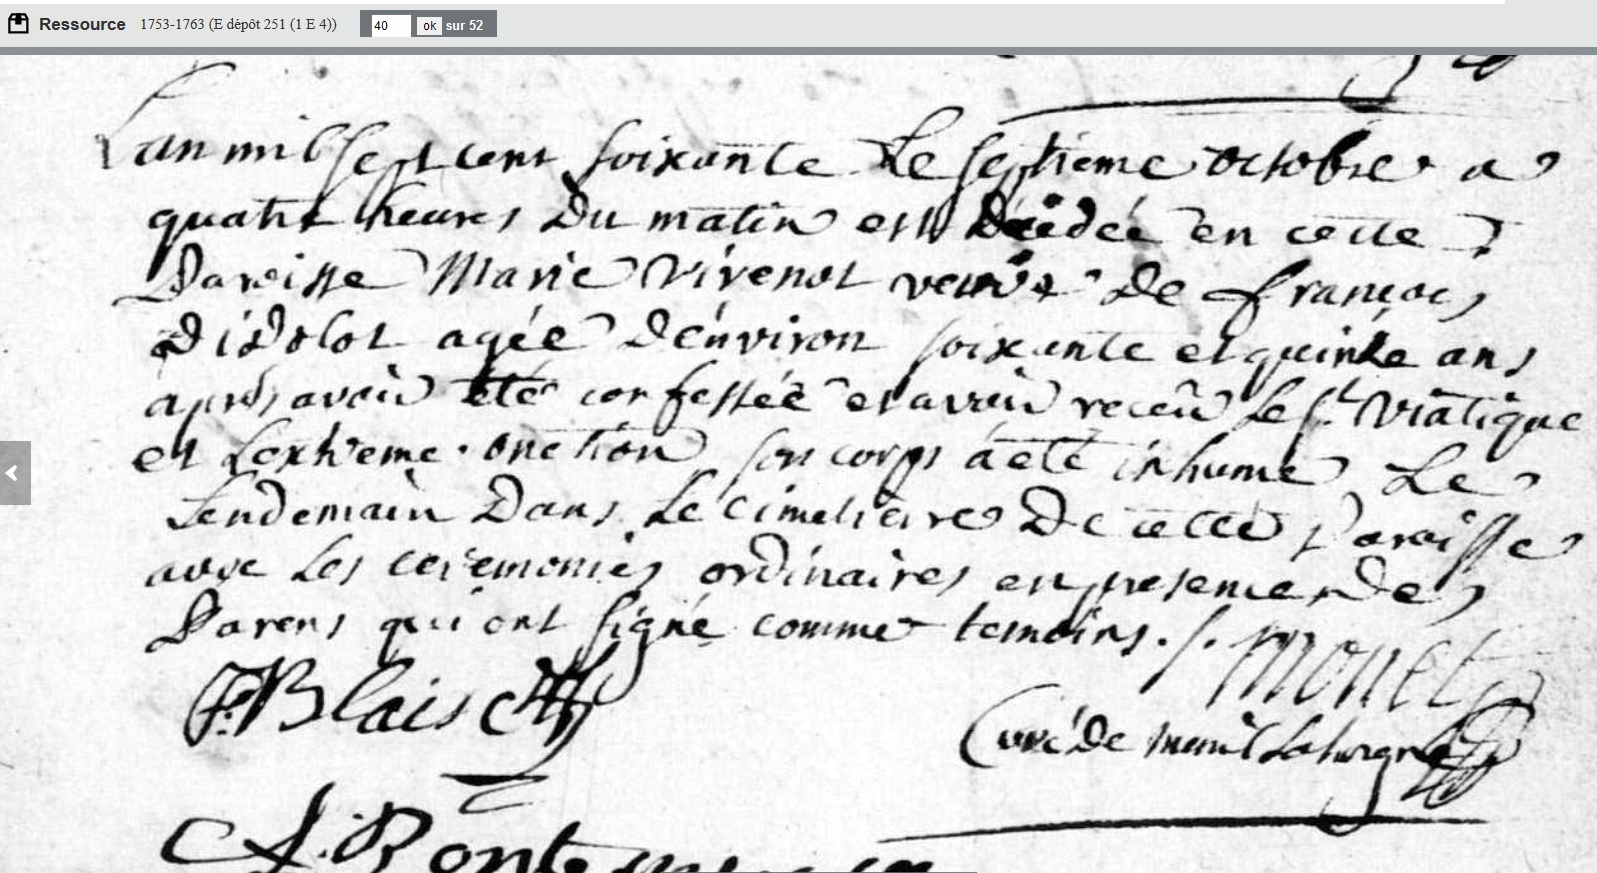 Ressource 1753-1763 (E dépôt 251 (1 E 4)) 40 ok sur 52
L'an mil sept cent soixante Le septieme octobre a
quatre heures Du matin est Décédée en cette
Paroisse Marie Vivenot veuve De François
Didolot agée D'énviron soixante et quinze ans
aprés avoir été confessée et avoir receû Le St Viatique
et L'extreme onction son corps á été inhumé Le
Lendemain Dans Le cimetiere De cette Paroisse
avec Les ceremonies ordinaires en presence Des
Parens qui ont signé comme temoins. S. Monet
F. Blaise
Curé De menil Lahorgne